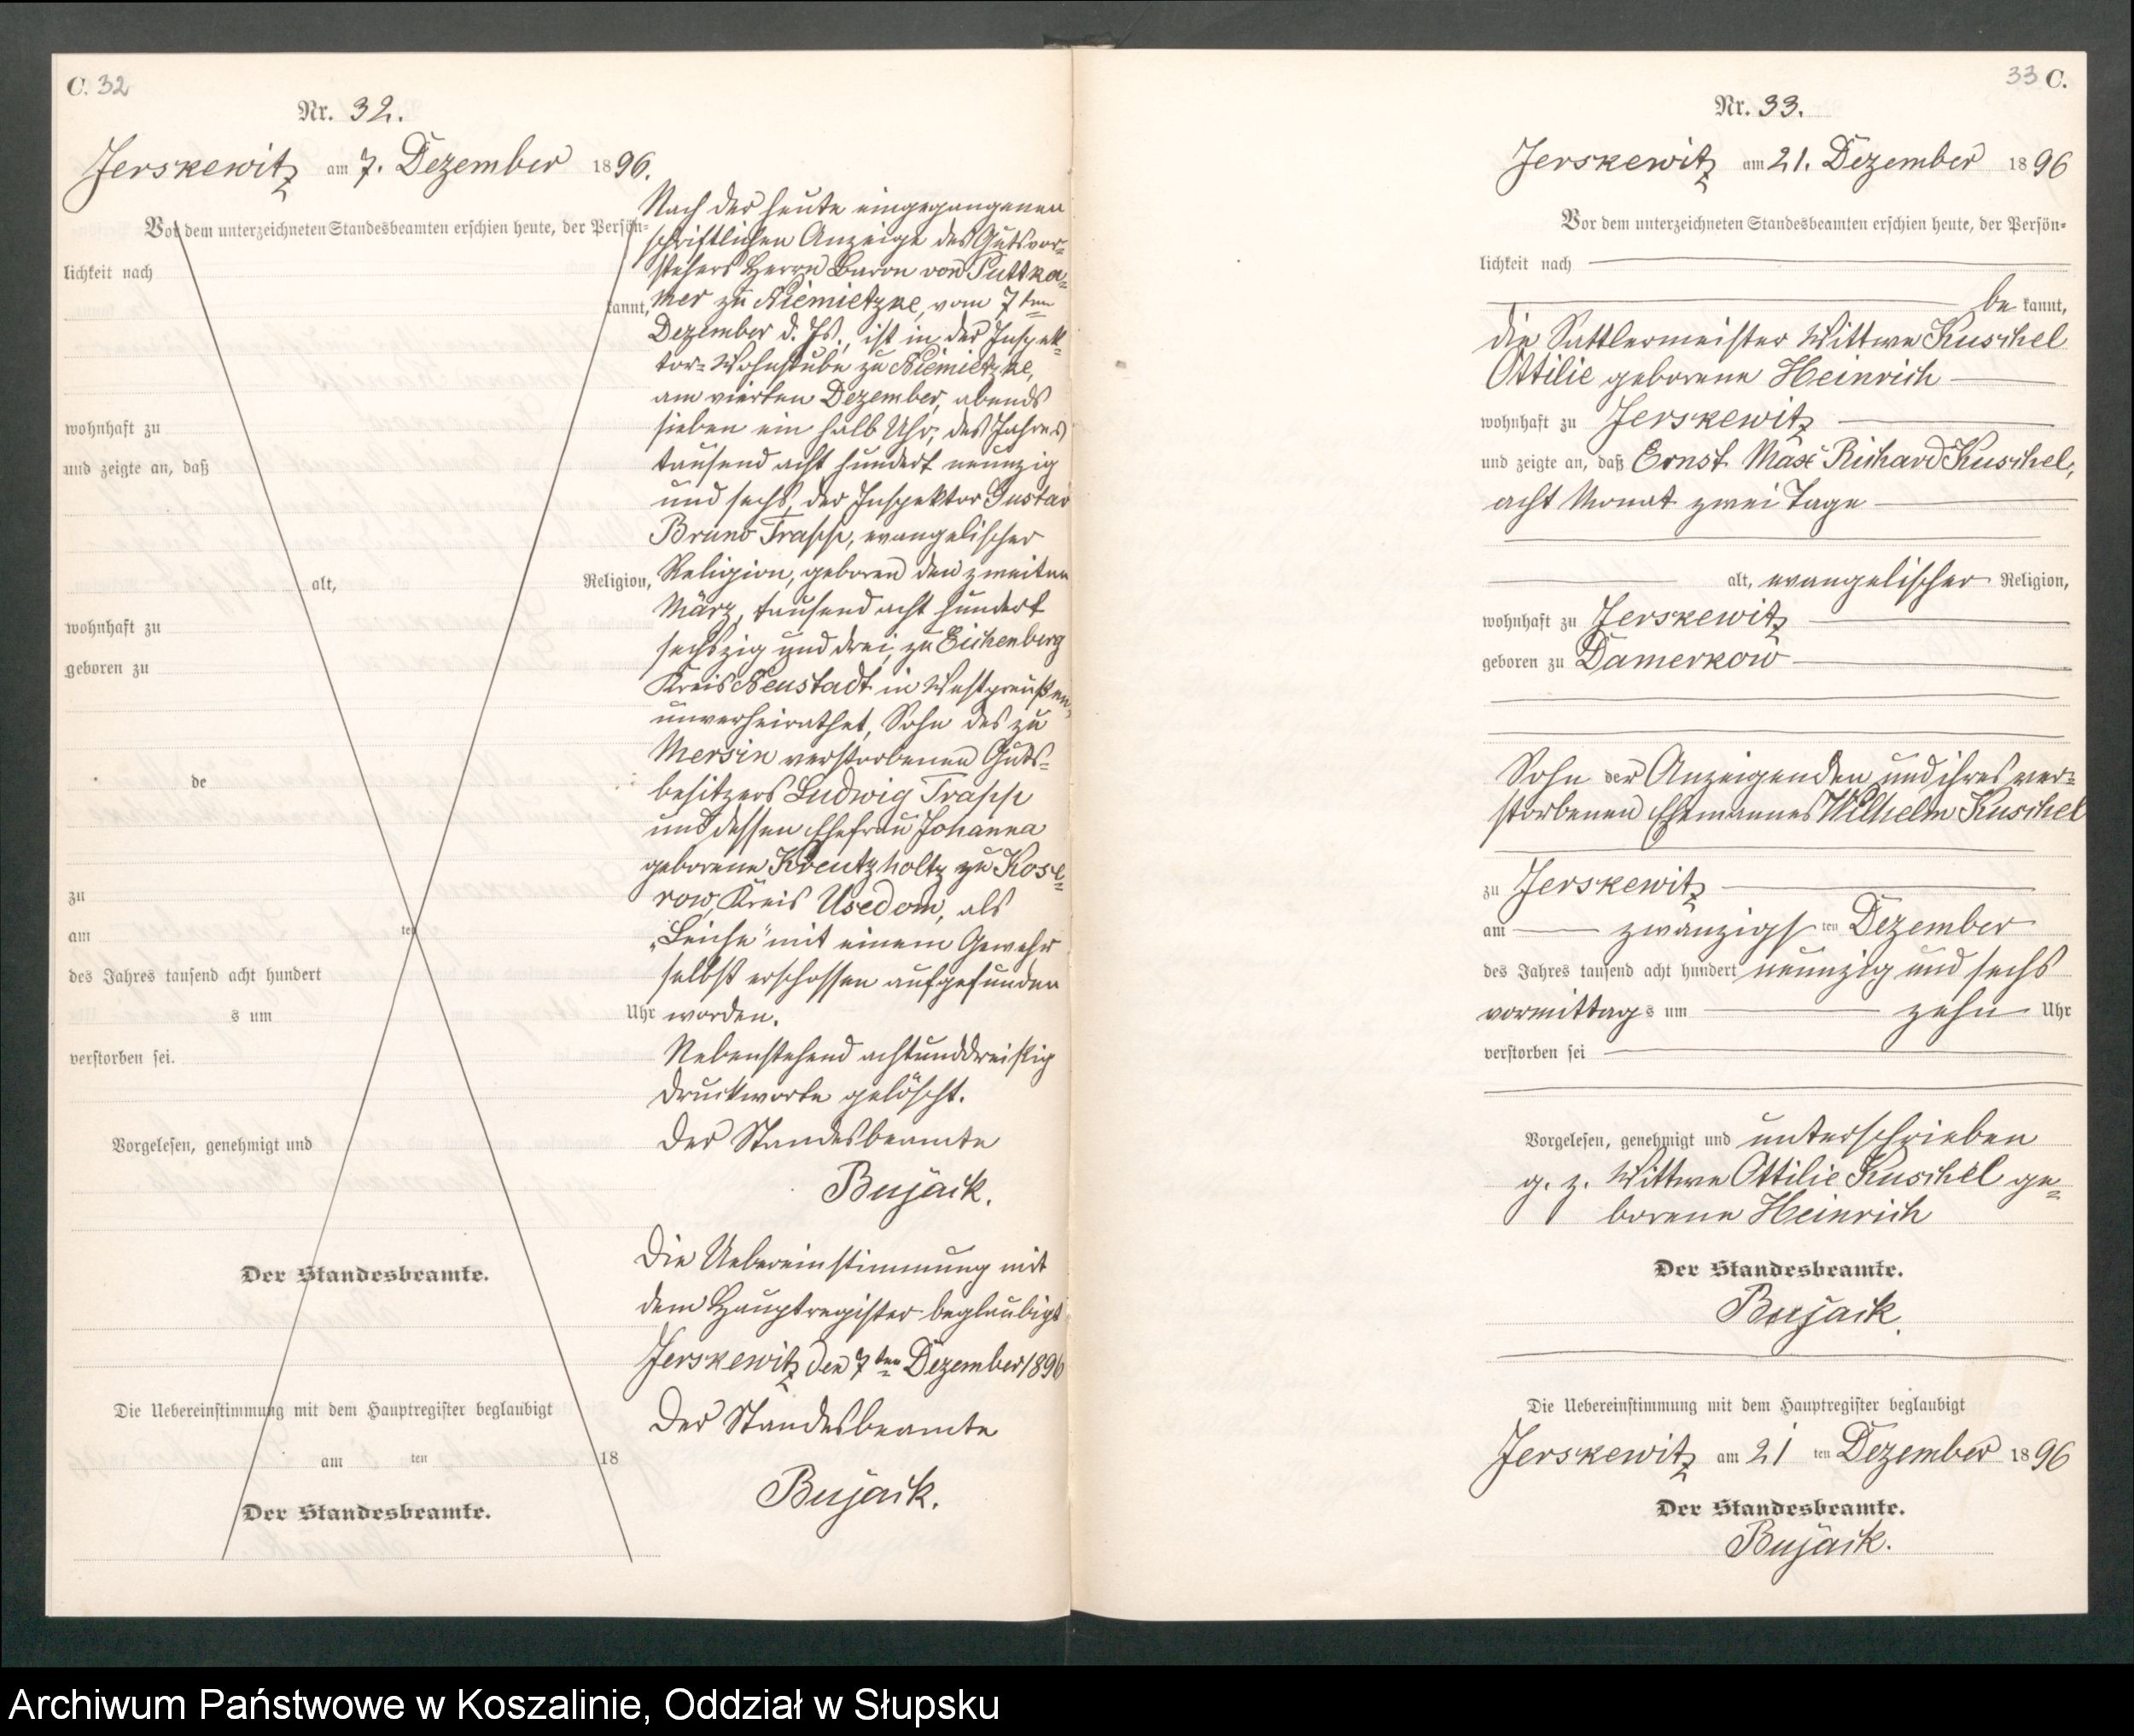 C. 32
Nr. 32.
Jerskewitz am 7. Dezember 1896.
Vor dem unterzeichneten Standesbeamten erschien heute, der Persön-
lichkeit nach
kannt,
wohnhaft zu
und zeigte an, daß
alt, Religion,
wohnhaft zu
geboren zu
de
zu
am ten
des Jahres tausend acht hundert
s um Uhr
verstorben sei.
Vorgelesen, genehmigt und
Der Standesbeamte.
Die Uebereinstimmung mit dem Hauptregister beglaubigt
am ten 18
Der Standesbeamte.
Nach der heute eingegangenen
schriftlichen Anzeige des Gutsvor-
stehers Herrn Baron von Puttka-
mer zu Niemietzke, vom 7ten
Dezember d. Js., ist in der Inspek-
tor-Wohnstube zu Niemietzke,
am vierten Dezember, abends
sieben ein halb Uhr, des Jahres
tausend acht hundert neunzig
und sechs, der Inspektor Gustav
Bruno Trapp, evangelischer
Religion, geboren den zweiten
März, tausend acht hundert
sechszig und drei, zu Eichenberg
Kreis Neustadt in Westpreußen,
unverheirathet, Sohn des zu
Mersin verstorbenen Guts-
besitzers Ludwig Trapp
und dessen Ehefrau Johanna
geborene Kreutzholtz zu Kose-
row, Kreis Usedom, als
„Leiche" mit einem Gewehr
selbst erschossen aufgefunden
worden.
Nebenstehend achtunddreißig
Druckworte gelöscht.
Der Standesbeamte
Bujack.
Die Uebereinstimmung mit
dem Hauptregister beglaubigt
Jerskewitz den 7ten Dezember 1896
Der Standesbeamte
Bujack.
33 C.
Nr. 33.
Jerskewitz am 21. Dezember 1896
Vor dem unterzeichneten Standesbeamten erschien heute, der Persön-
lichkeit nach
be kannt,
die Sattlermeister Wittwe Kuschel
Ottilie geborene Heinrich
wohnhaft zu Jerskewitz
und zeigte an, daß Ernst Max Richard Kuschel,
acht Monat zwei Tage
alt, evangelischer Religion,
wohnhaft zu Jerskewitz
geboren zu Damerkow
Sohn der Anzeigenden und ihres ver-
storbenen Ehemannes Wilhelm Kuschel
zu Jerskewitz
am zwanzigsten Dezember
des Jahres tausend acht hundert neunzig und sechs
vormittags um zehn Uhr
verstorben sei
Vorgelesen, genehmigt und unterschrieben
g. z. Wittwe Ottilie Kuschel ge-
borene Heinrich
Der Standesbeamte.
Bujack.
Die Uebereinstimmung mit dem Hauptregister beglaubigt
Jerskewitz am 21 ten Dezember 1896
Der Standesbeamte.
Bujack.
Archiwum Państwowe w Koszalinie, Oddział w Słupsku